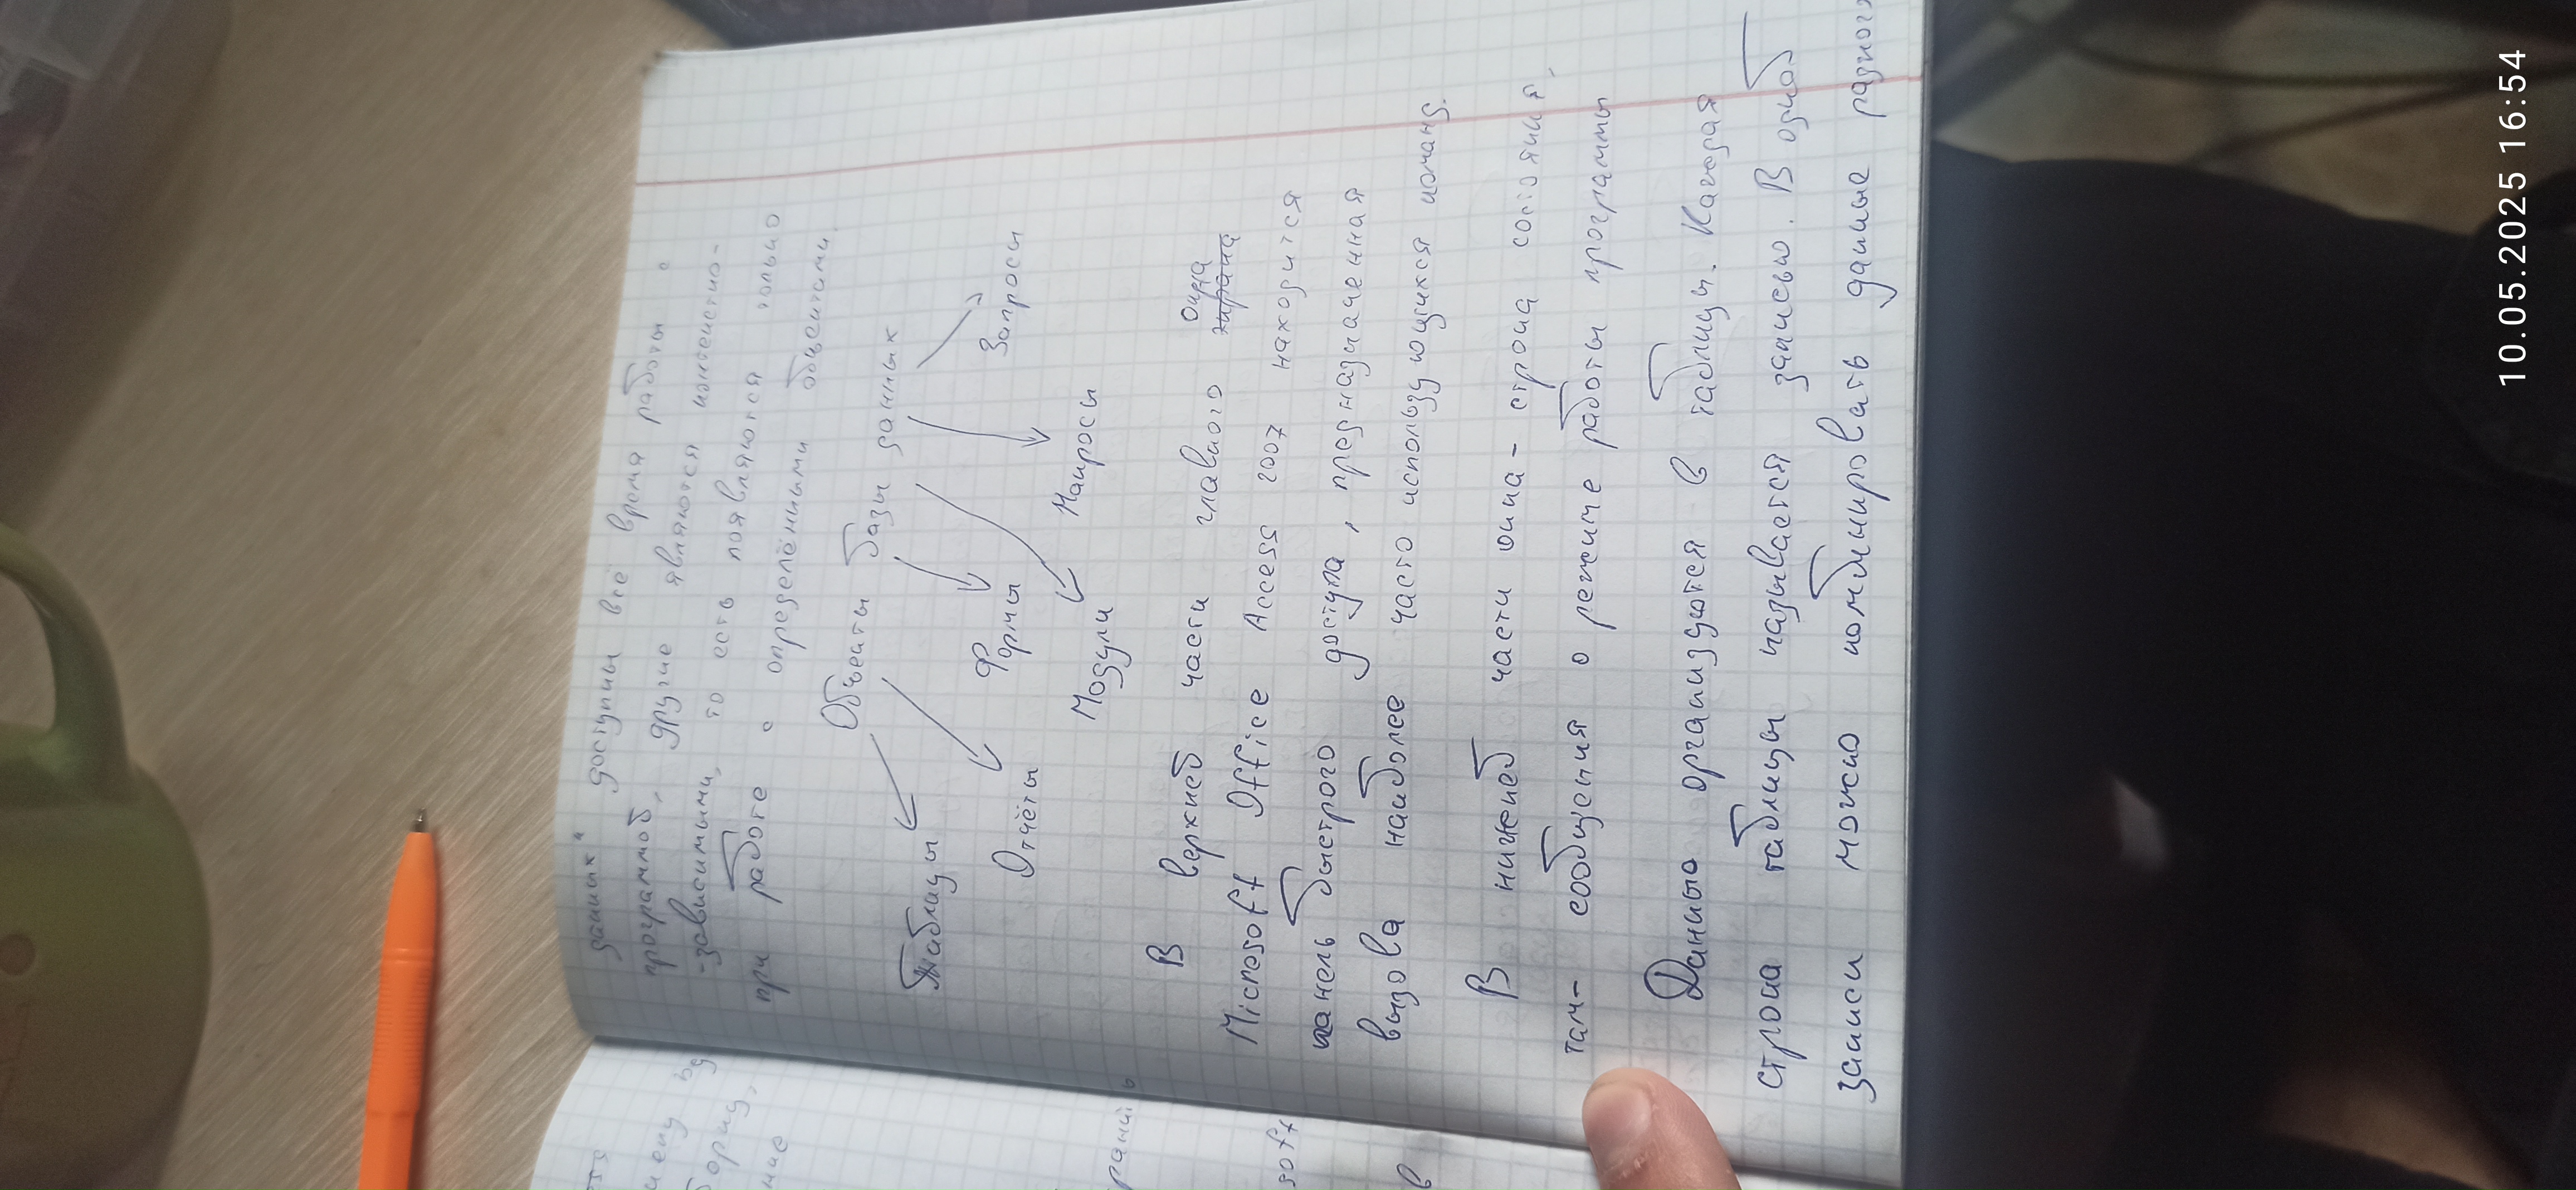 данных" доступны всё время работы с
программой, другие являются контекстно-
-зависимыми, то есть появляются только
при работе с определёнными объектами.
Объекты базы данных
Таблицы
Отчёты
Формы
Модули
Макросы
Запросы
В верхней части главного экрана окна
Microsoft Office Access 2007 находится
панель быстрого доступа, предназначенная
вызова наиболее часто использующихся команд.
В нижней части окна - строка состояния,
там- сообщения о режиме работы программы
Данные организуются в таблицы. Каждая
строка таблицы называется записью. В одной
записи можно комбинировать данные разного
ему
форму,
ние
рани
soft
в
10.05.2025 16:54